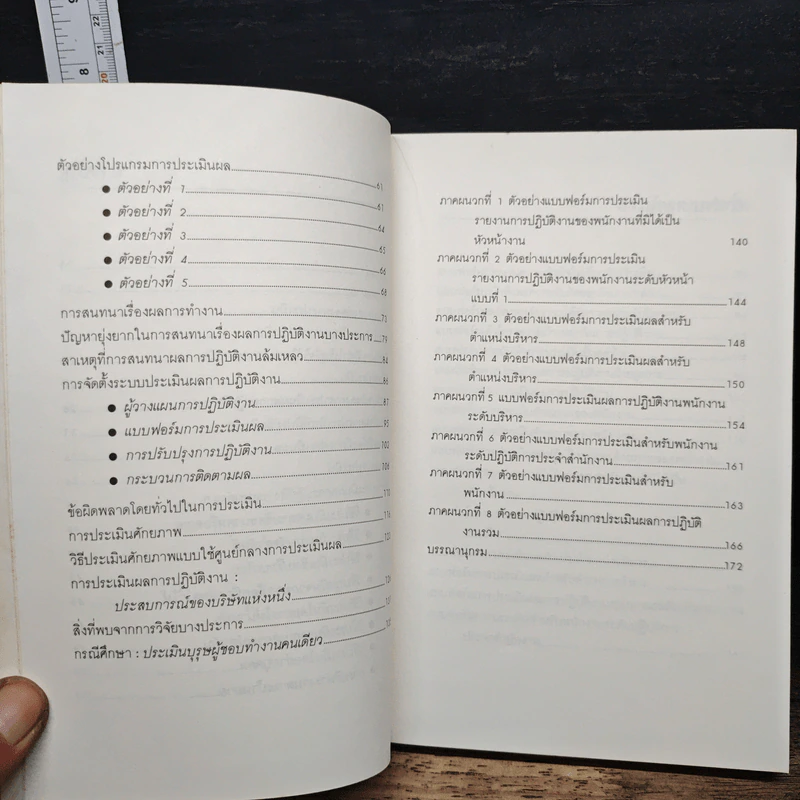 8
22
21
20
ตัวอย่างโปรแกรมการประเมินผล 61
● ตัวอย่างที่ 1 61
● ตัวอย่างที่ 2 64
● ตัวอย่างที่ 3 65
● ตัวอย่างที่ 4 66
● ตัวอย่างที่ 5 68
การสนทนาเรื่องผลการทำงาน 73
ปัญหายุ่งยากในการสนทนาเรื่องผลการปฏิบัติงานบางประการ 79
สาเหตุที่การสนทนาผลการปฏิบัติงานล้มเหลว 84
การจัดตั้งระบบประเมินผลการปฏิบัติงาน 86
● ผู้วางแผนการปฏิบัติงาน 87
● แบบฟอร์มการประเมินผล 95
● การปรับปรุงการปฏิบัติงาน 102
● กระบวนการติดตามผล 106
ข้อผิดพลาดโดยทั่วไปในการประเมิน
การประเมินศักยภาพ
วิธีประเมินศักยภาพแบบใช้ศูนย์กลางการประเมินผล
การประเมินผลการปฏิบัติงาน :
ประสบการณ์ของบริษัทแห่งหนึ่ง
สิ่งที่พบจากการวิจัยบางประการ
กรณีศึกษา : ประเมินบุรุษผู้ชอบทำงานคนเดียว
ภาคผนวกที่ 1 ตัวอย่างแบบฟอร์มการประเมิน
รายงานการปฏิบัติงานของพนักงานที่มิได้เป็น
หัวหน้างาน 140
ภาคผนวกที่ 2 ตัวอย่างแบบฟอร์มการประเมิน
รายงานการปฏิบัติงานของพนักงานระดับหัวหน้า
แบบที่ 1 144
ภาคผนวกที่ 3 ตัวอย่างแบบฟอร์มการประเมินผลสำหรับ
ตำแหน่งบริหาร 148
ภาคผนวกที่ 4 ตัวอย่างแบบฟอร์มการประเมินผลสำหรับ
ตำแหน่งบริหาร 150
ภาคผนวกที่ 5 แบบฟอร์มการประเมินผลการปฏิบัติงานพนักงาน
ระดับบริหาร 154
ภาคผนวกที่ 6 ตัวอย่างแบบฟอร์มการประเมินสำหรับพนักงาน
ระดับปฏิบัติการประจำสำนักงาน 161
ภาคผนวกที่ 7 ตัวอย่างแบบฟอร์มการประเมินสำหรับ
พนักงาน 163
ภาคผนวกที่ 8 ตัวอย่างแบบฟอร์มการประเมินผลการปฏิบัติ
งานรวม 166
บรรณานุกรม 172